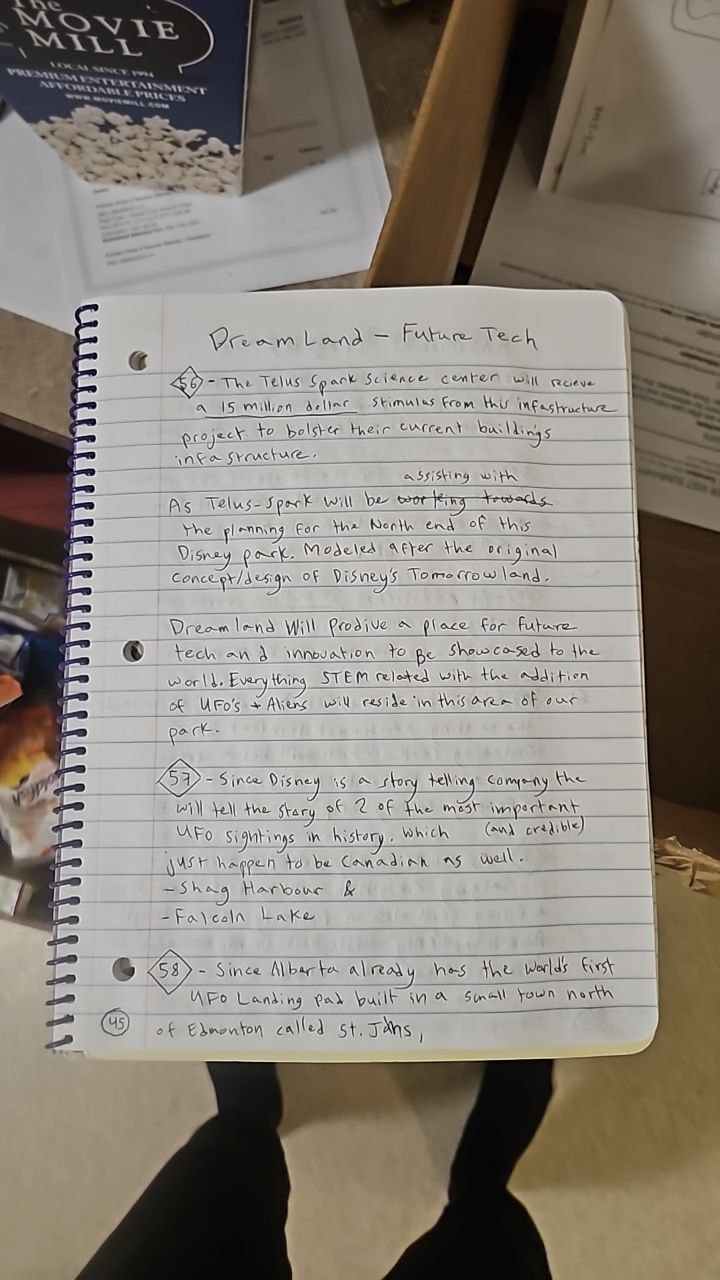 The
MOVIE
MILL
LOCAL SINCE 1994
PREMIUM ENTERTAINMENT
AFFORDABLE PRICES
WWW.MOVIEMILL.COM
DreamLand - Future Tech
56 - The Telus Spark Science center will recieve
a 15 million dollar stimulus from this infastructure
project to bolster their current buildings
infastructure.
assisting with
As Telus-Spark will be working towards
the planning for the North end of this
Disney park. Modeled after the original
concept/design of Disney's Tomorrowland.
Dreamland Will Prodive a place for future
tech and innovation to Be showcased to the
world. Everything STEM related with the addition
of UFO's + Aliens will reside in this area of our
park.
57 - Since Disney is a story telling company the
will tell the story of 2 of the most important
UFO sightings in history. which (and credible)
just happen to be Canadian as well.
- Shag Harbour &
- Falcoln Lake
58 - Since Alberta already has the world's first
UFO Landing pad built in a small town north
of Edmonton called St. Johns,
45